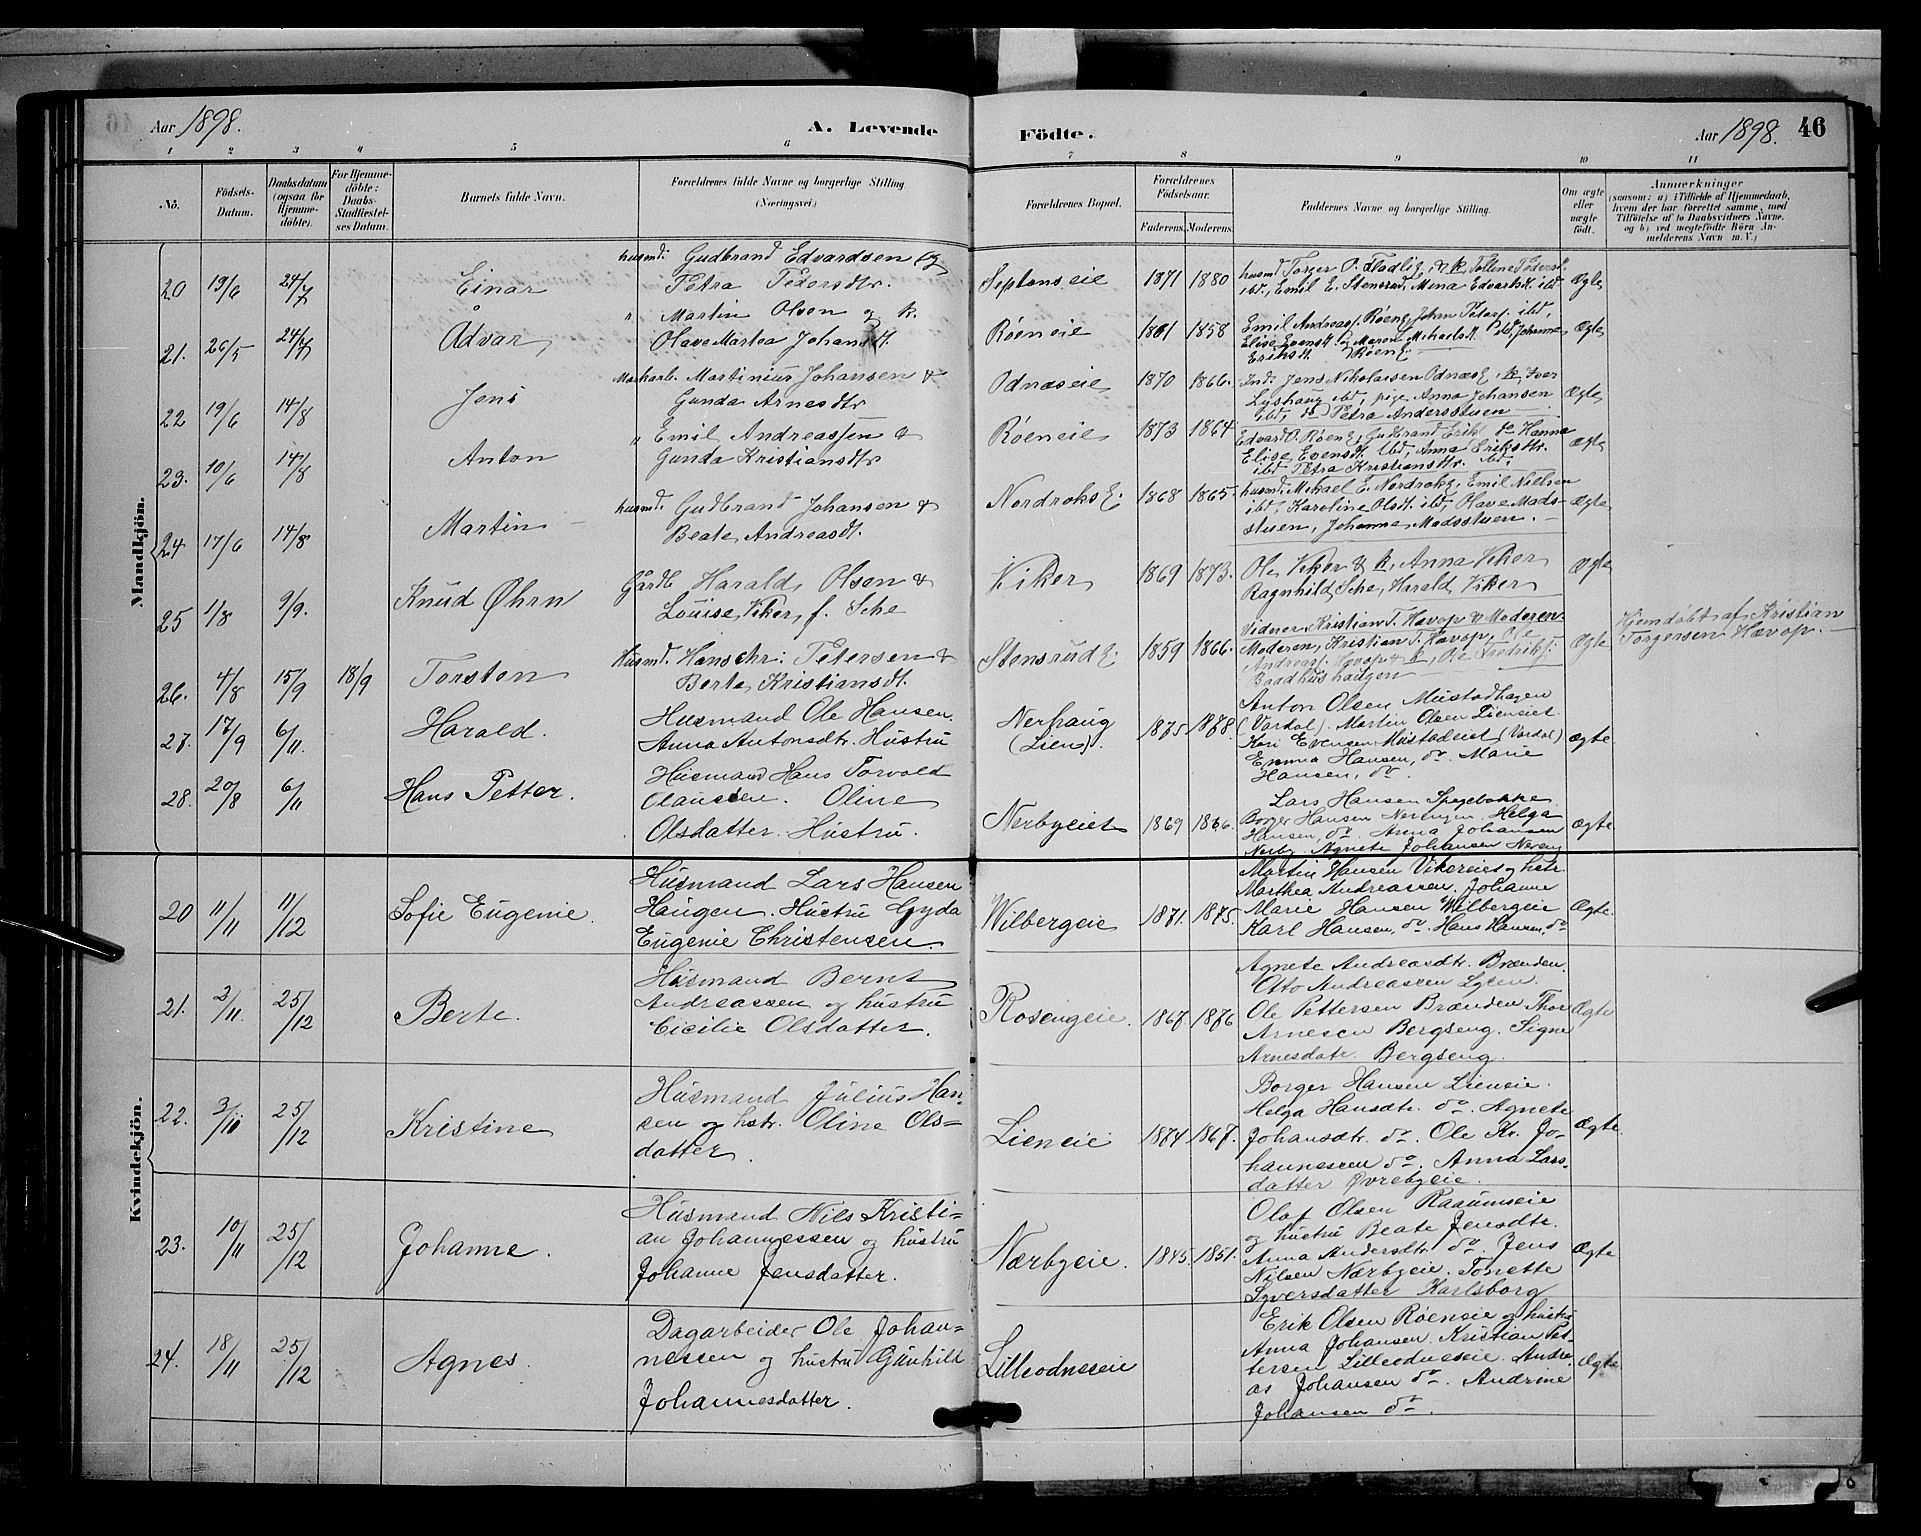 Aar 1898.
A. Levende
Födte.
Aar 1898. 46
1 2 3 4 5 6 7 8 9 10 11
No.
Födsels-Datum.
Daabsdatum (ogsaa for Hjemme-döbte).
For Hjemme-döbte: Daabs-Stadfæstel-ses Datum.
Barnets fulde Navn.
Forældrenes fulde Navne og borgerlige Stilling. (Næringsvei.)
Forældrenes Bopæl.
Forældrenes Födselsaar.
Faderens. Moderens.
Faddernes Navne og borgerlige Stilling.
Om ægte eller uægte født.
Anmærkninger
(saasom: a) i Tilfælde af Hjemmedaab, hvem der har forrettet samme, med Tilföielse af to Daabsvidners Navne. og b) ved uægtefödte Börn Anmelderens Navn m. V.)
Mandkjön.
20 19/6 24/7 Einar
husmd. Gudbrand Edvardsen og
Petra Pedersdtr.
Septonseie 1871 1880
husmd Torger O. Fladlie, & k. Tolline Pedersd.
ibd., Emil E. Stensrud, Mina Edvardsd. ibd
Ægte
21. 26/5 24/7 Ådvar
" Martin Olsen og k.
Olave Martea Johansdt.
Røeneie 1861 1858
Emil Andreass. Røene, Johan Peters. ibd,
Elise Evensdt. og Maren Mikaelsdt ibd, Johanne
Eriksdt. Røene
Ægte
22 19/6 14/8 Jens
Martinius Johansen &
Gunda Arnesdtr
Odnæseie 1870 1866.
Ind. Jens Nikolaisen Odnæse, k, Iver
Lyshaug ibd, pige Anna Johansen
ibd, do Petra Andersstuen
Ægte
23. 10/6 14/8 Anton
" Emil Andreassen &
Gunda Kristiansdtr
Røeneie 1873 1864
Edvard O. Røene, Gudbrand Erik. do Hanna
Elise Evensdt. ibd, Anna Eriksdtr.
ibd Petra Kristiansdtr. ibd,
ægte
24 17/6 14/8 Martin
husmd. Gudbrand Johansen &
Beate Andreasdt.
Nordrokse. 1868 1865.
husmd. Mikael E. Nordroke, Emil Nielsen
ibd, Karoline Olsdt. ibd, Olave Mads-
stuen, Johanne Madsstuen.
Ægte
25 1/8 9/9. Knud Øhrn
Gårdb Harald Olsen &
Louise Viker, f. Sche
Viker 1869 1873.
Ole Viker & k, Anna Viker
Ragnhild Sche, Harald Viker
Ægte
26. 4/8 15/9 18/9 Torsten
Husmd. Hans Chr: Petersen &
Berte Kristiansdt.
Stensrude. 1859 1866.
Vidner Kristian T. Havop & Moderen
Moderen, Kristian T. Havop, Ole
Andreass. Havop & k, Ole Fredriks:
Baadhushaugen
Ægte
Hjemdøbt af Kristian
Torgersen Hævop.
27. 17/9 6/11. Harald.
Husmand Ole Hansen.
Anna Antonsdtr. Hustru
Nerhaug
(Lien).
1875 1878.
Anton Olsen Mustadhagen
(Vardal). Martin Olsen Lieneiet
Kari Evensen Mustadeiet (Vardal)
Emma Hansen, do. Marie
Hansen, do.
Ægte
28. 20/8 6/11 Hans Petter.
Husmand Hans Torvald
Olaussen. Oline
Olsdatter. Hustru.
Nerbyeiet 1869 1866.
Lars Hansen Spegebakke
Borger Hansen Helga
Hansen, do. Anna Johansen
Nerby. Agnete Johansen
Ægte
Kvindekjön.
20 11/11 11/12 Sofie Eugenie.
Husmand Lars Hansen
Haugen. Hustru Gyda
Eugenie Christensen.
Wilbergeie 1871. 1875.
Martin Hansen Vikereiet og hstr.
Marthea Andreassen. Johanne
Marie Hansen Wilbergeie
Karl Hansen, do. Hans Hansen, do
Ægte.
21. 2/11. 25/12 Berte.
Husmand Bernt
Andreassen og hustru
Cicilie Olsdatter.
Rosengeie. 1867. 1876
Agnete Andreasdtr. Brænden.
Otto Andreassen Lyen.
Ole Pettersen Brænden. Thor
Arnesen Bergseng. Signe
Arnesdatr. Bergseng.
Ægte
22. 3/10 25/12 Kristine
Husmand Julius Han-
sen og hstr. Oline Ols-
datter.
Lieneie 1874 1867.
Borger Hansen Lieneie.
Helga Hansdtr. do. Agnete
Johansdtr. do. Ole Kr. Jo-
hannessen do. Anna Lars-
datter Øvrebyeie.
Ægte.
23. 10/11 25/12 Johanne.
Husmand Nils Kristi-
an Johannessen og hustru
Johanne Jensdatter.
Nærbyeie. 1845. 1851.
Olaf Olsen Raaumseie
og hustru Beate Jensdtr.
Anna Andersdtr. do. Jens
Nilsen Nærbyeie. Torrette
Syversdatter Karlsborg
Ægte
24. 18/11 25/12 Agnes.
Dagarbeider Ole Johan-
nessen og hustru Gunhild
Johannesdatter.
Lilleodneseie
Erik Olsen Røeneie og hustru
Anna Johansen. Kristian Pet-
tersen Lilleodneseie. Andre-
as Johansen do. Andrine
Johansen do.
Ægte